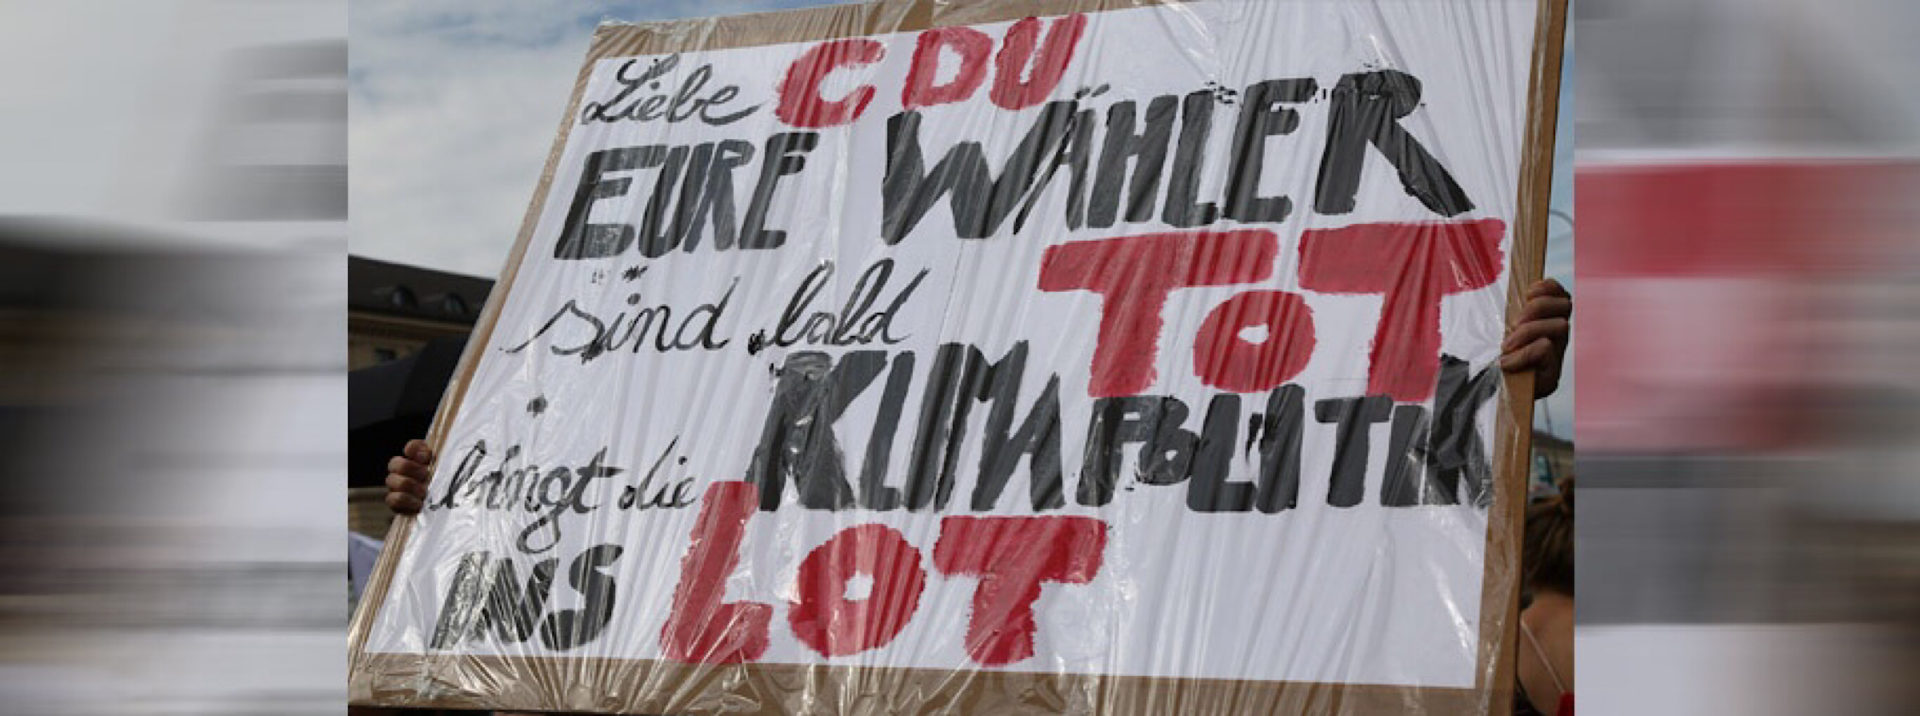 Liebe CDU
EURE WÄHLER
sind bald TOT
bringt die KLIMAPOLITIK
INS LOT